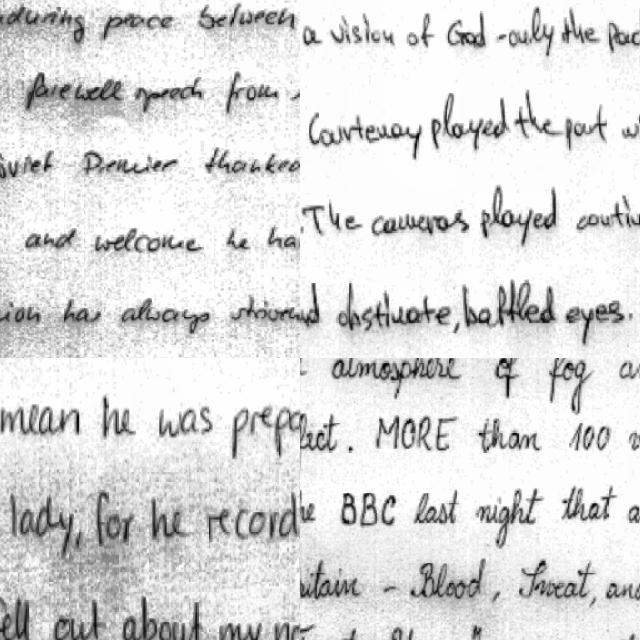 enduring peace between
farewell speech from
Soviet Premier thanked
and welcome he ha
ion has always strived
a vision of God - only the pac
Courtenay played the part wi
The cameras played contin
d obstinate, baffled eyes.
mean he was prepa
lady, for he record
ell out about my ne
atmosphere of fog an
lict. MORE than 100 v
he BBC last night that a
itain - Blood, Sweat, and